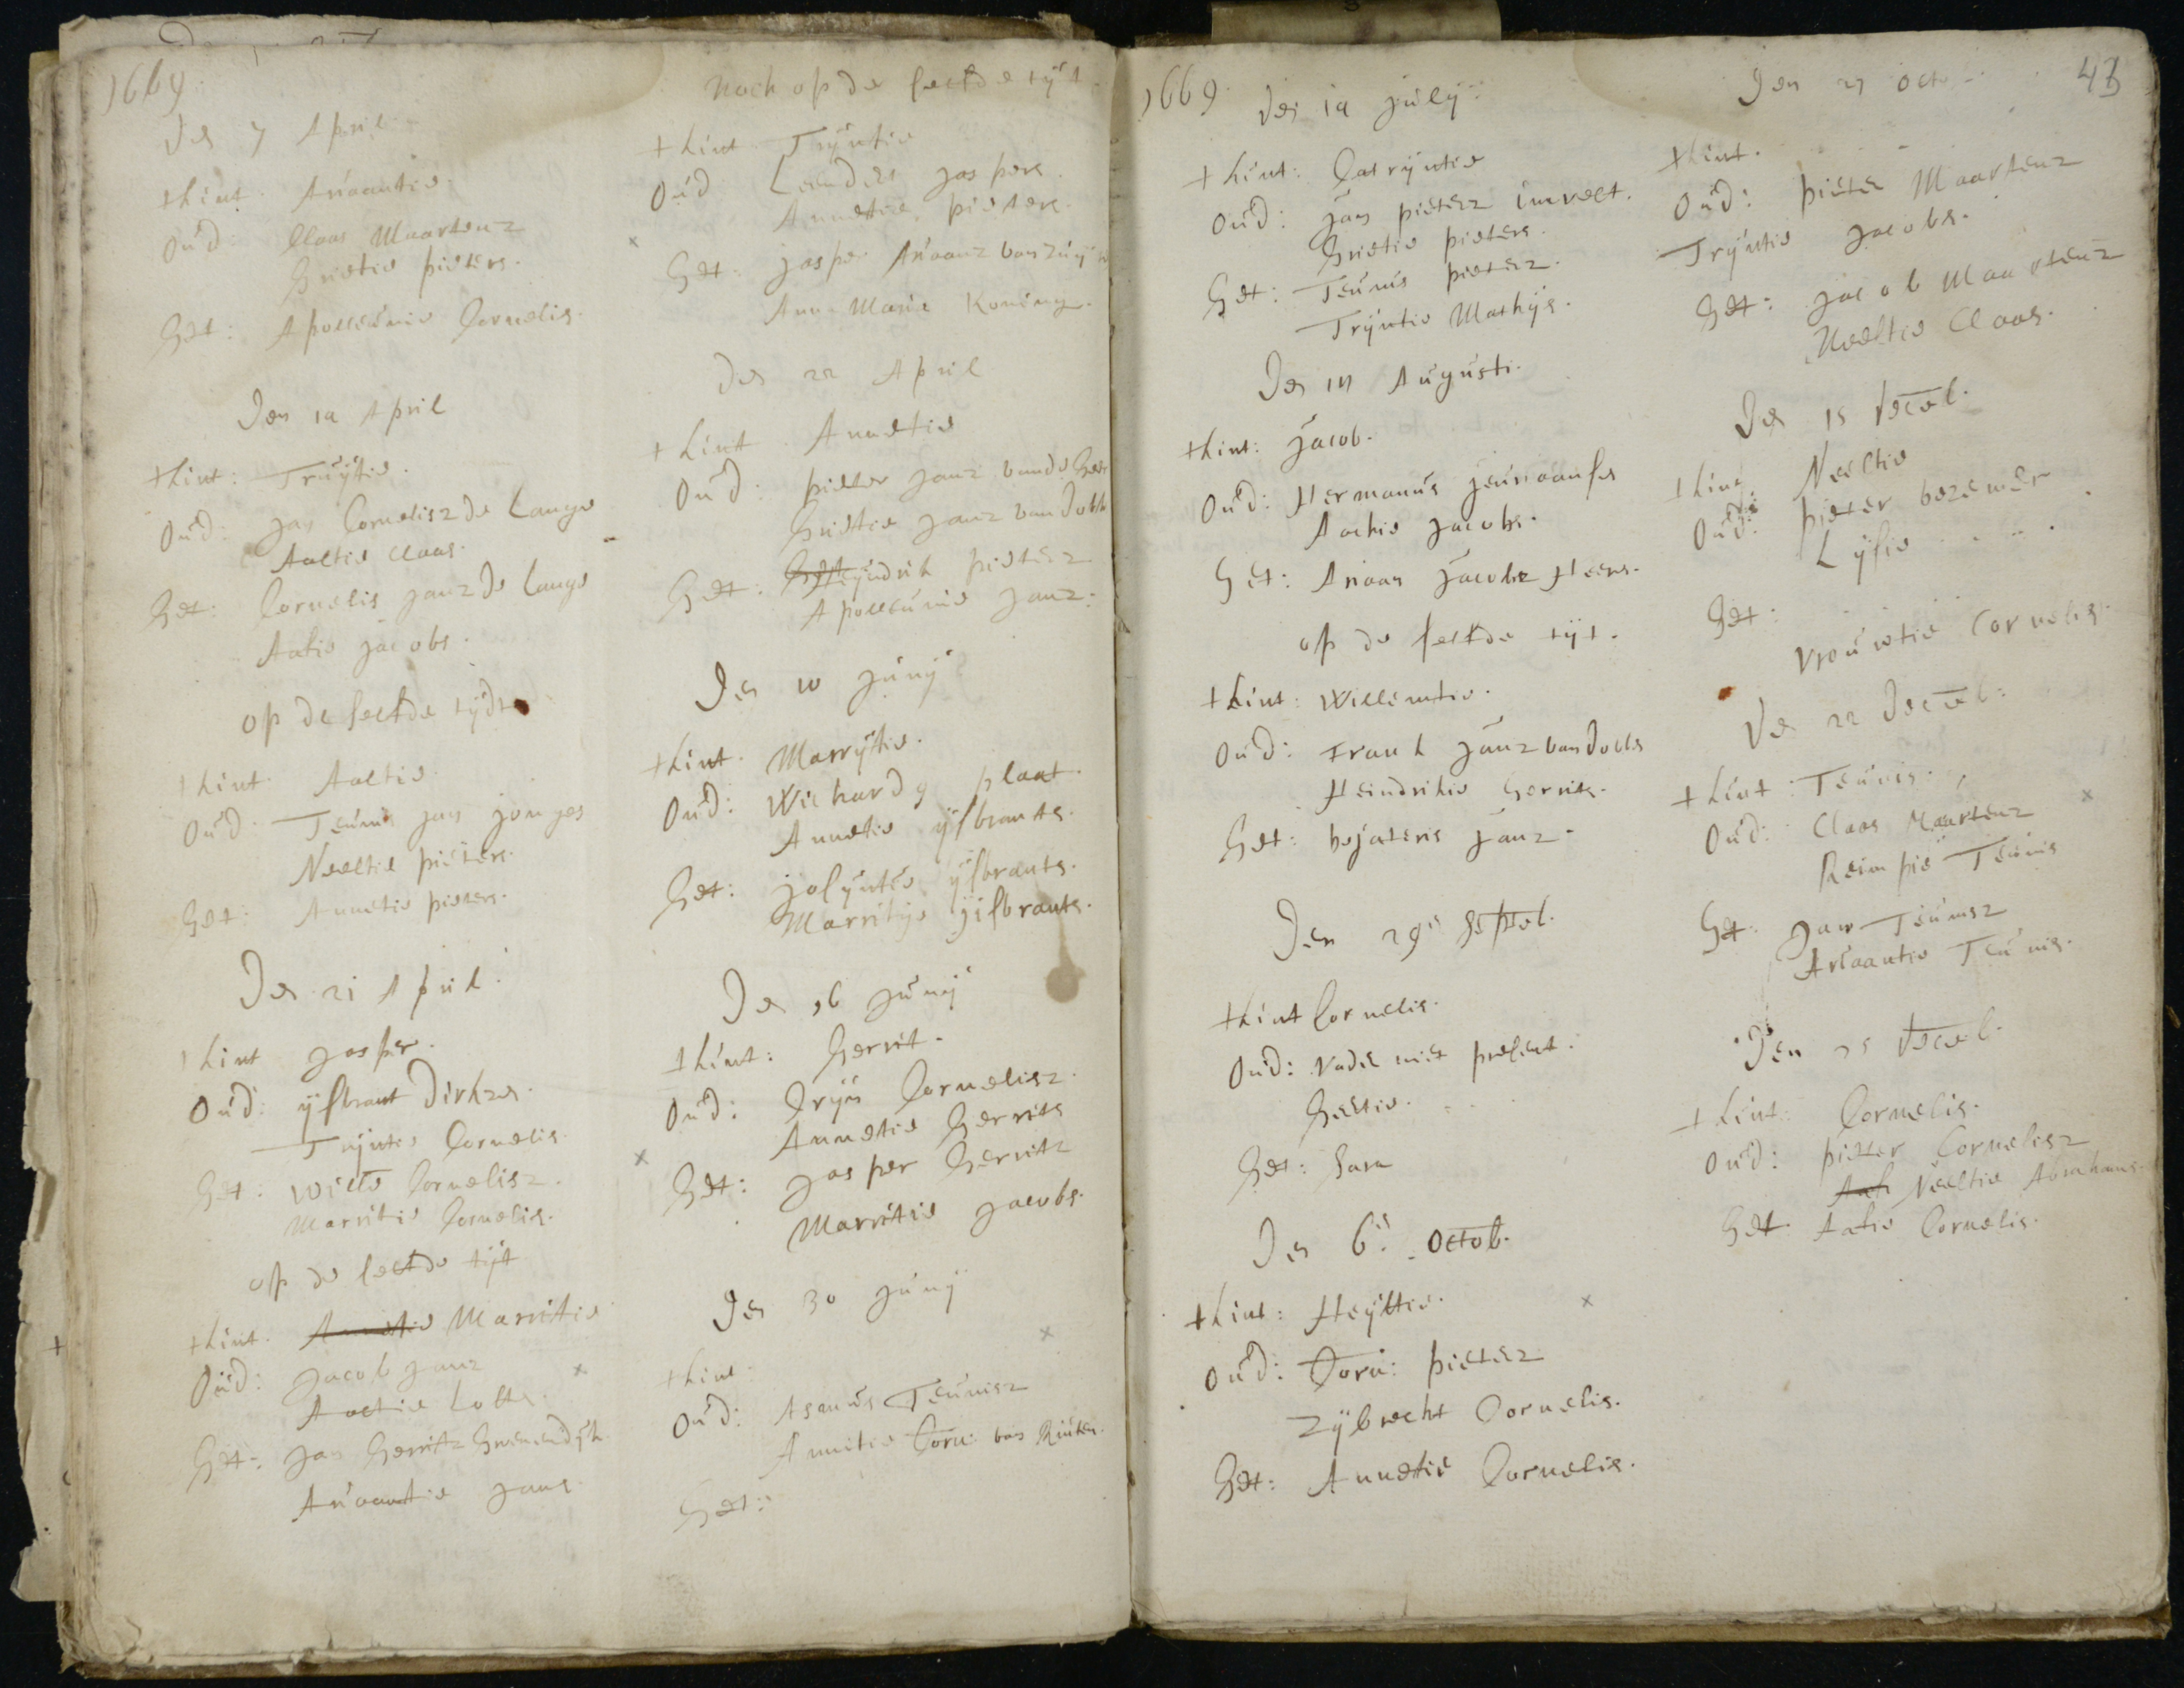 1669
Den 7 April
tkint. Ariaantie.
Oud: Claas Maartenz
Grietie pieters.
Get: Apolleunie Cornelis.
Den 14 April
tkint: Truytie.
Oud: Jan Cornelisz de Lange
Aaltie Claas.
Get: Cornelis Janz de Lange
Aafie Jacobs.
op de selfde tydt
tkint. Aaltie.
Oud: Teunis Jan Jonges
Neeltie pieters.
Get: Annetie pieters.
Den 21 April.
tkint Jasper.
Oud: ysbrant Dirksz.
Tryntie Cornelis
Get: Willem Cornelisz.
Marritie Cornelis.
op de selfde tijt
tkint. Annetie Marritie
Oud: Jacob Janz
Aeltie
Get: Jan Gerritz Groenendijk
Ariaantie Jans.
Noch op de selfde tyt.
tkint. Tryntie
Oud: Leendert Jaspers.
Annetie pieters.
Get: Jasper Ariaanz van
Anna Maria Koning.
Den 22 April
tkint. Annetie
Oud: pieter Janz vande
Grietie Janz van
Get: Get Heyndrik pietersz
Apolleunie Janz:
Den 10 Juny
tkint. Marrytie.
Oud: Wichard plaat.
Annetie ysbrants.
Get: Josyntie ysbrants.
Marritije yisbrants.
Den 16 Juny
tkint: Gerrit.
Oud: Cryn Cornelisz.
Annetie Gerrits
Get: Jasper Gerritz
Marritie Jacobs.
Den 30 Juny
tkint:
Oud: Asmus Teunisz
Annitie Corn: van
Get:
1669.
Den 14 July:
tkint: Catryntie
Oud: Jan pietersz
Grietie pieters.
Get: Teunis pietersz.
Tryntie Mathys.
Den 11 Augusti.
tkint: Jacob.
Oud: Hermanus
Aachie Jacobs.
Get: Ariaan Jacobz Heere.
op de selfde tyt.
tkint: Willemtie.
Oud: Frank Janz van
Heindrikie Gerrits.
Get: Janz.
Den 29 Septeb.
tkint Cornelis.
Oud: Vader niet present.
Geertie.
Get: Sara
Den 6 Octob.
tkint: Heyltie.
Oud: Corn: pietersz
Zybrecht Cornelis.
Get: Annetie Cornelis.
Den 27 octo
43
tkint.
Oud: pieter Maartenz
Tryntie Jacobs.
Get: Jacob Maartenz
Neeltie Claas.
Den 15 Deceb.
tkint. Neeltie
Oud: pieter bezemer
Lysie . . .
Get:
Vrouwtie Cornelis.
Den 22 Deceb:
tkint: Teunis.
Oud: Claas Maartenz
Reimpie Teunis
Get: Jan Teunisz
Ariaantie Teunis.
Den 25 Deceb.
tkint: Cornelis.
Oud: pieter Cornelisz
Aafi Neeltie Abrahams.
Get. Aafie Cornelis.